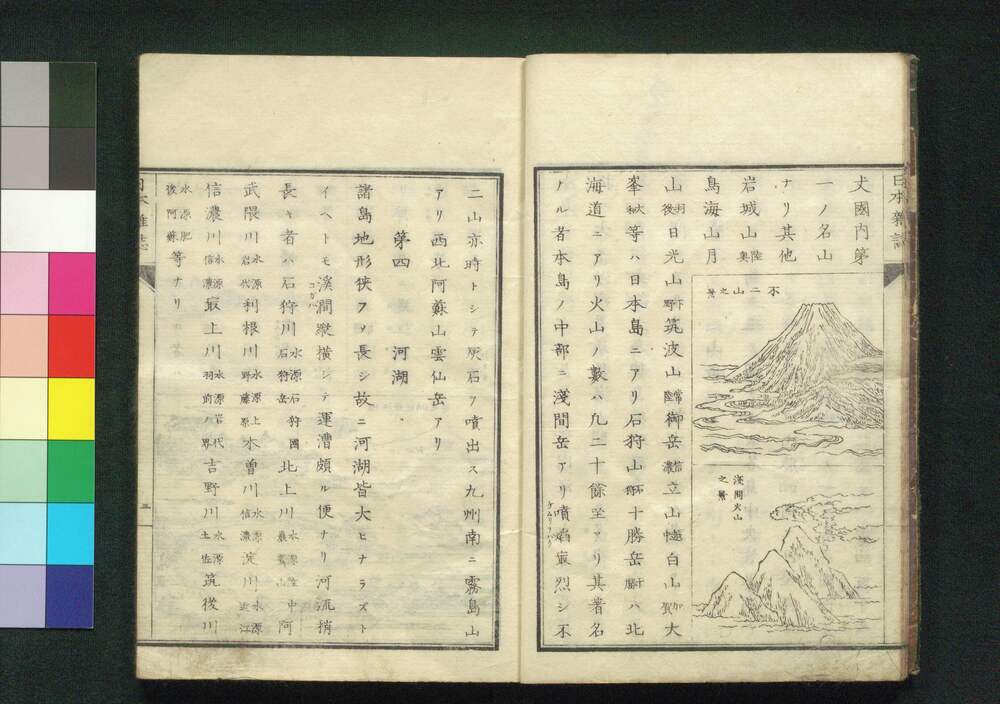 日本雜誌
丈國內第
一ノ名山
ナリ其他
岩城山陸奧
鳥海山月
不二山之景
淺間火山之景
山羽後日光山下野筑波山常陸御岳信濃立山越白山加賀大
峯大和等ハ日本島ニアリ石狩山石狩十勝岳十勝ハ北
海道ニアリ火山ノ數ハ凡二十餘坐アリ其著名
ナル者本島ノ中部ニ淺間岳アリ噴焰最烈シ不
ケムリヲハク
二山亦時トシテ灰石ヲ噴出ス九州南ニ霧島山
アリ西北阿蘇山雲仙岳アリ
第四 河湖
諸島地形狹フソ長シ故ニ河湖皆大ヒナラズト
イヘトモ溪澗蹤橫シテ運漕頗ル便ナリ河流稍
コガハ
長キ者ハ石狩川水源石狩國石狩岳北上川水源陸中岩鷲山阿
武隈川水源岩代利根川水源上野藤原木曾川水源信濃淀川水源近江
信濃川水源信濃最上川水源岩代羽前ノ界吉野川水源土佐筑後川
水源肥後阿蘇等ナリ
三